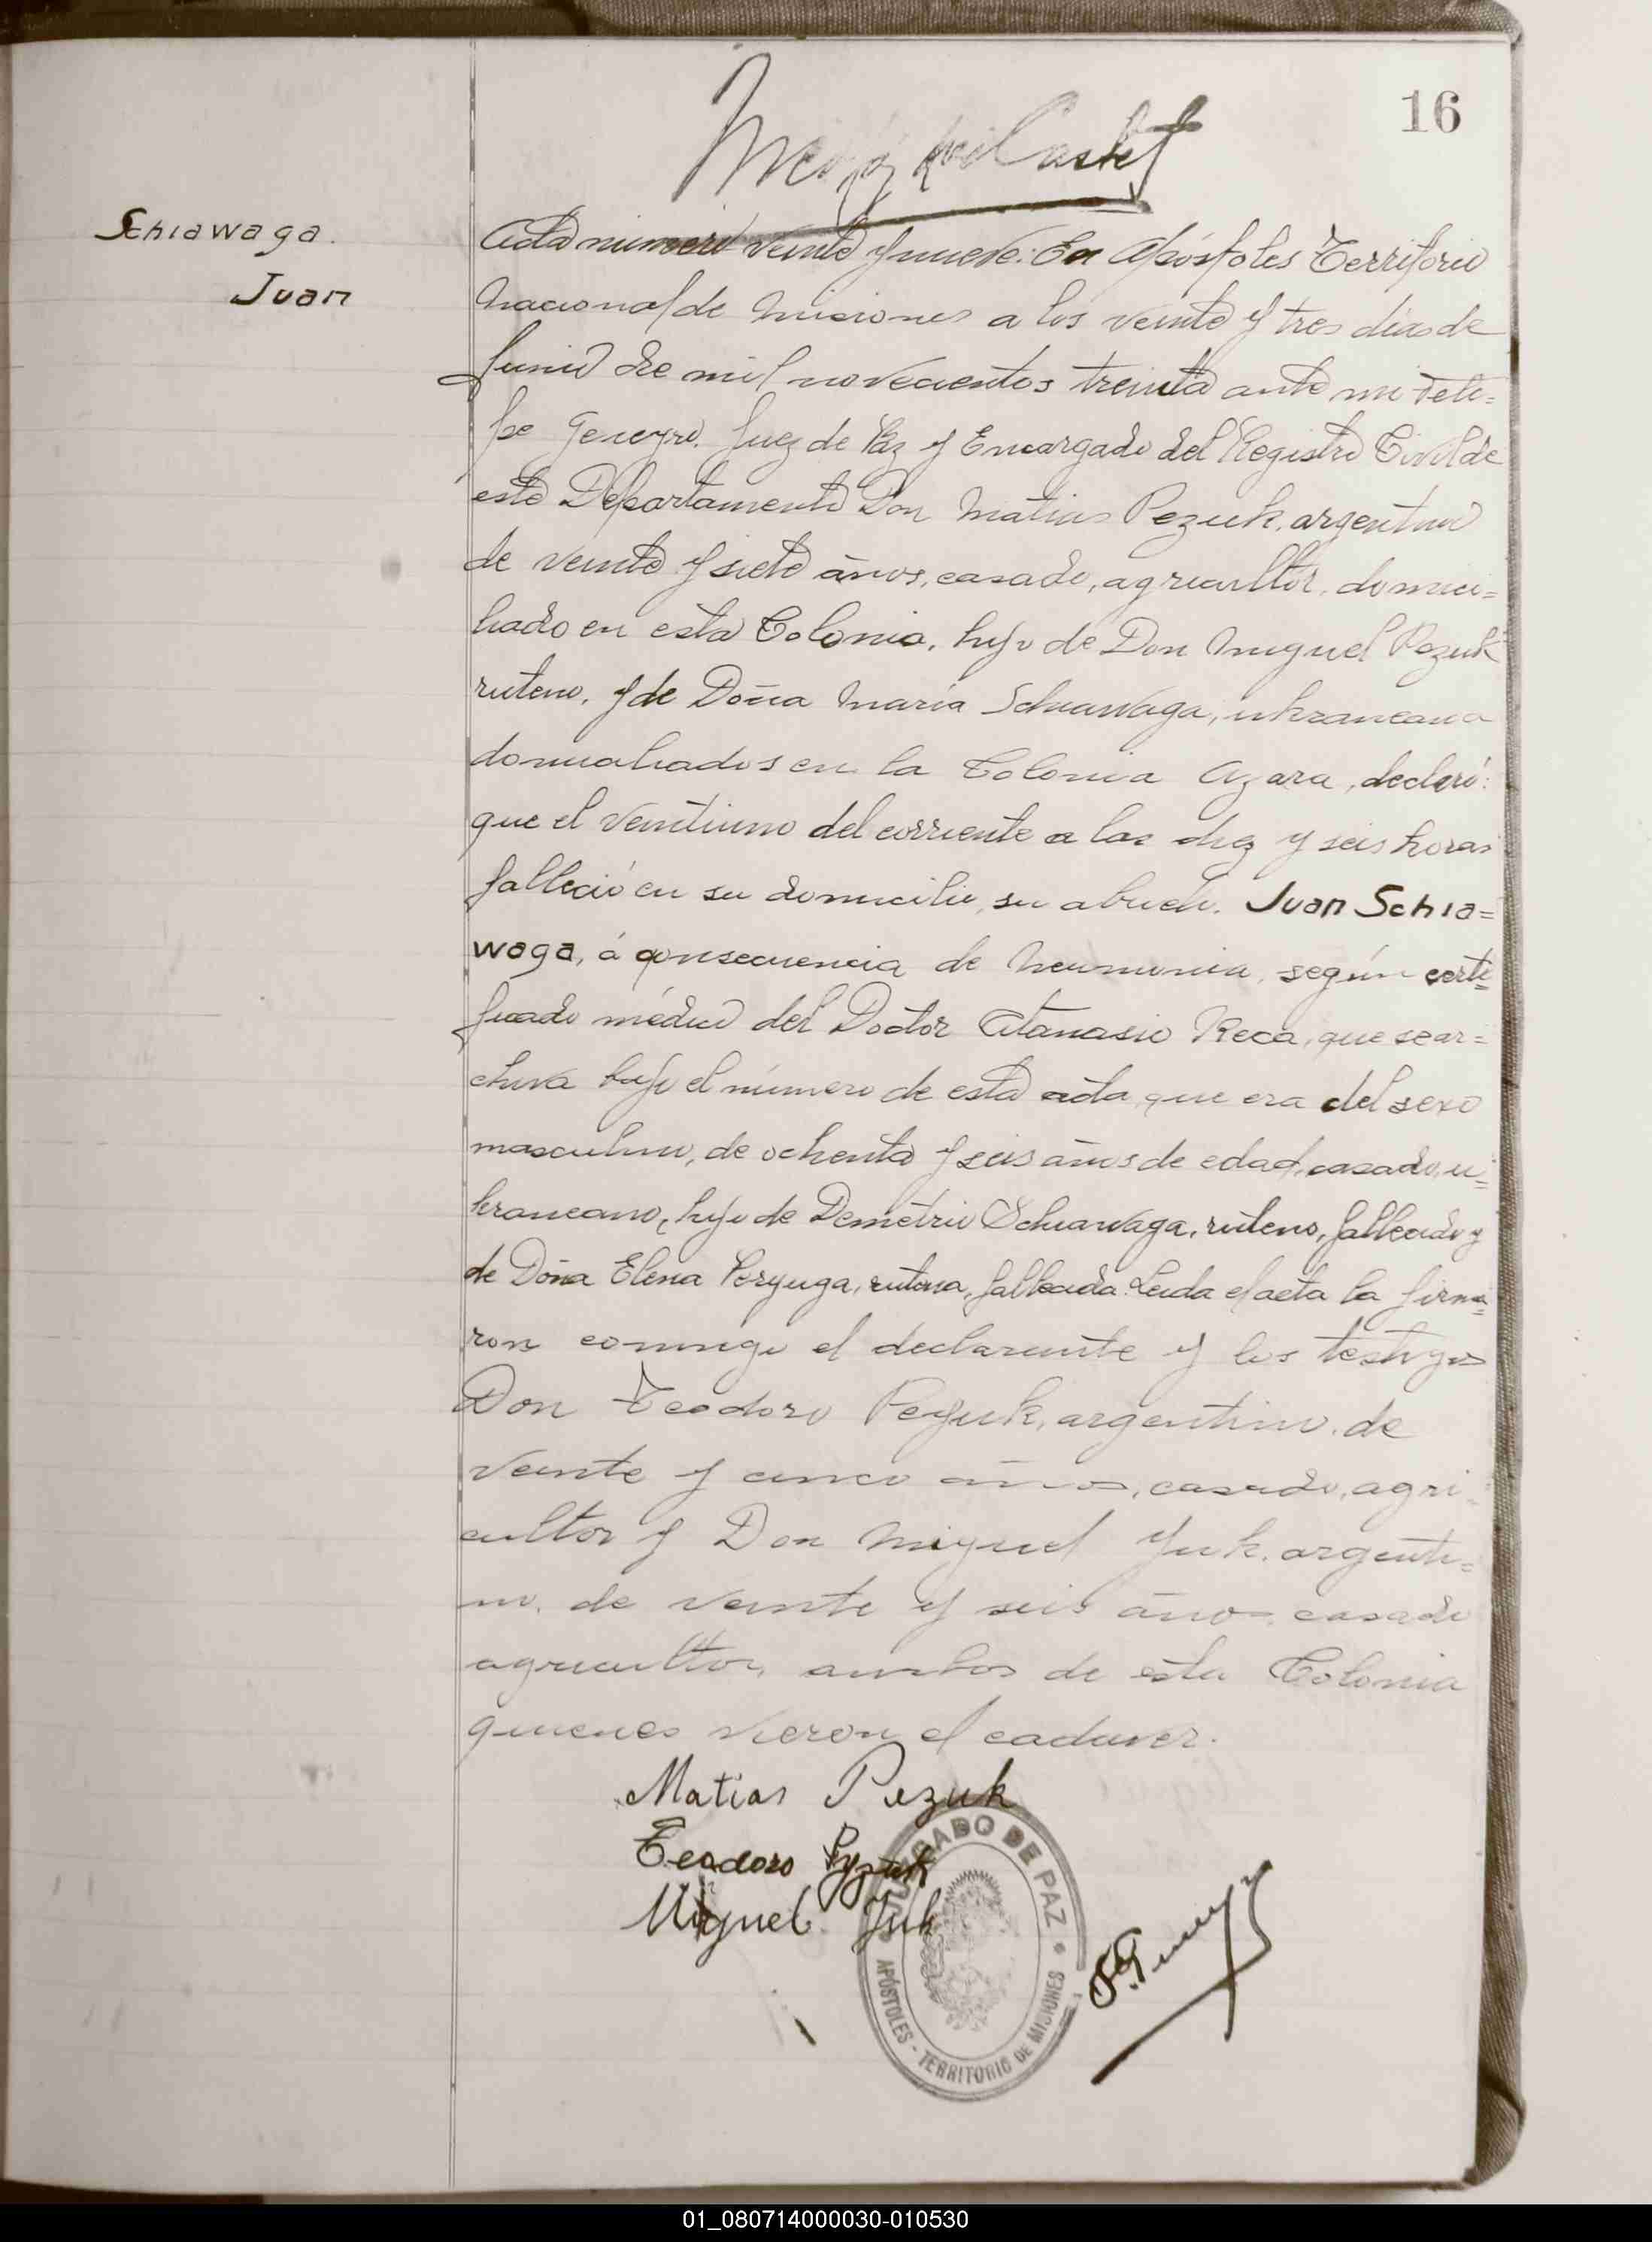 16
Schiawaga.
Juan
Acta número veinte y nueve: En Apóstoles Territorio
Nacional de Misiones a los veinte y tres dias de
Junio de mil novecientos treinta ante mi Feli=
pe Juez de Paz y Encargado del Registro Civil de
este Departamento Don Matias Pezuk, argentino
de veinte y siete años, casado, agricultor, domici=
liado en esta Colonia, hijo de Don Miguel Pezuk
ruteno, y de Doña María Schiawaga, ukraneana
domiciliados en la Colonia Azara, declaró:
que el veintiuno del corriente a las diez y seis horas
falleció en su domicilio, su abuelo. Juan Schia=
waga, á consecuencia de Neumonia, según certi=
ficado médico del Doctor Atanasio Reca, que se ar=
chiva bajo el número de esta acta, que era del sexo
masculino, de ochenta y seis años de edad, casado, u=
kraneano, hijo de Demetrio Schiawaga, ruteno, fallecido y
de Doña Elena rutena, fallecida. Leida el acta la firma=
ron conmigo el declarante y los testigos
Don Teodoro Pezuk, argentino, de
veinte y cinco años, casado, agri=
cultor y Don Miguel Juk, argenti=
no, de veinte y seis años casado
agricultor, ambos de esta Colonia
quienes vieron el cadaver.
Matias Pezuk
Teodoro
Miguel Juk
JUZGADO DE PAZ
APÓSTOLES - TERRITORIO DE MISIONES
01_080714000030-010530